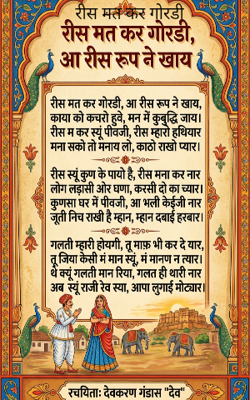 रीस मत कर गोरडी
रीस मत कर गोरडी,
आ रीस रूप ने खाय
रीस मत कर गोरडी, आ रीस रूप ने खाय,
काया को कचरो हुवे, मन में कुबुद्धि जाय।
रीस म कर स्यूं पीवजी, रीस म्हारो हथियार
मना सको तो मनाय लो, काठो राखो प्यार।
रीस स्यूं कुण के पायो है, रीस मना कर नार
लोग लड़ासी ओर घणा, करसी दो का च्यार।
कुणसा घर में पीवजी, आ भली केईजी नार
जूती निच राखी है म्हान, म्हान दबाई हरबार।
गलती म्हारी होयगी, तू माफ़ भी कर दे यार,
तू जिया केसी मं मान स्यूं, मं मानण न त्यार।
थे क्यूं गलती मान रिया, गलत ही थारी नार
अब स्यूं राजी रेव स्या, आपा लुगाई मोट्यार।
रचयिताः देवकरण गंडास "देव"